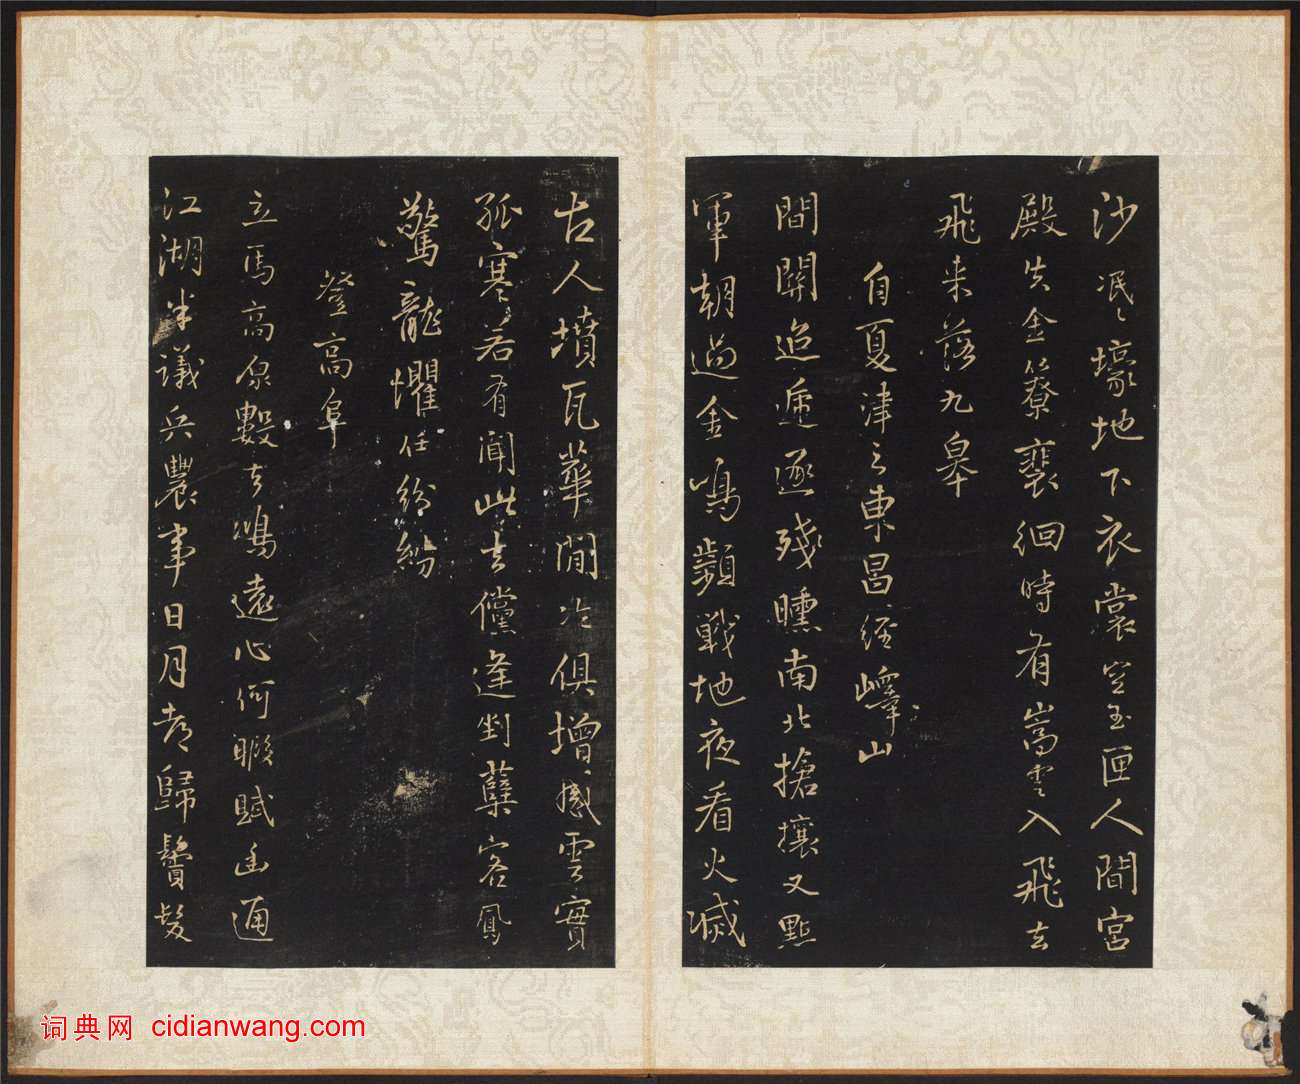 沙泯泯壕地下衣裳空玉匣人間宮
殿失金簝裴徊時有嵩雲入飛去
飛来落九皋
自夏津之東昌經嶧山
間關迢遞逐殘曛南北搶攘又點
軍朝過金鳴顰戰地夜看火滅
古人墳瓦華閒冷俱增感雲實
孤寒若有聞此去儻逢剉蘖客鳳
驚龍懼任紛紛
登高阜
立馬高原數去鴻遠心何暇賦幽通
江湖半議兵農事日月都歸鬢髮
词典网 cidianwang.com